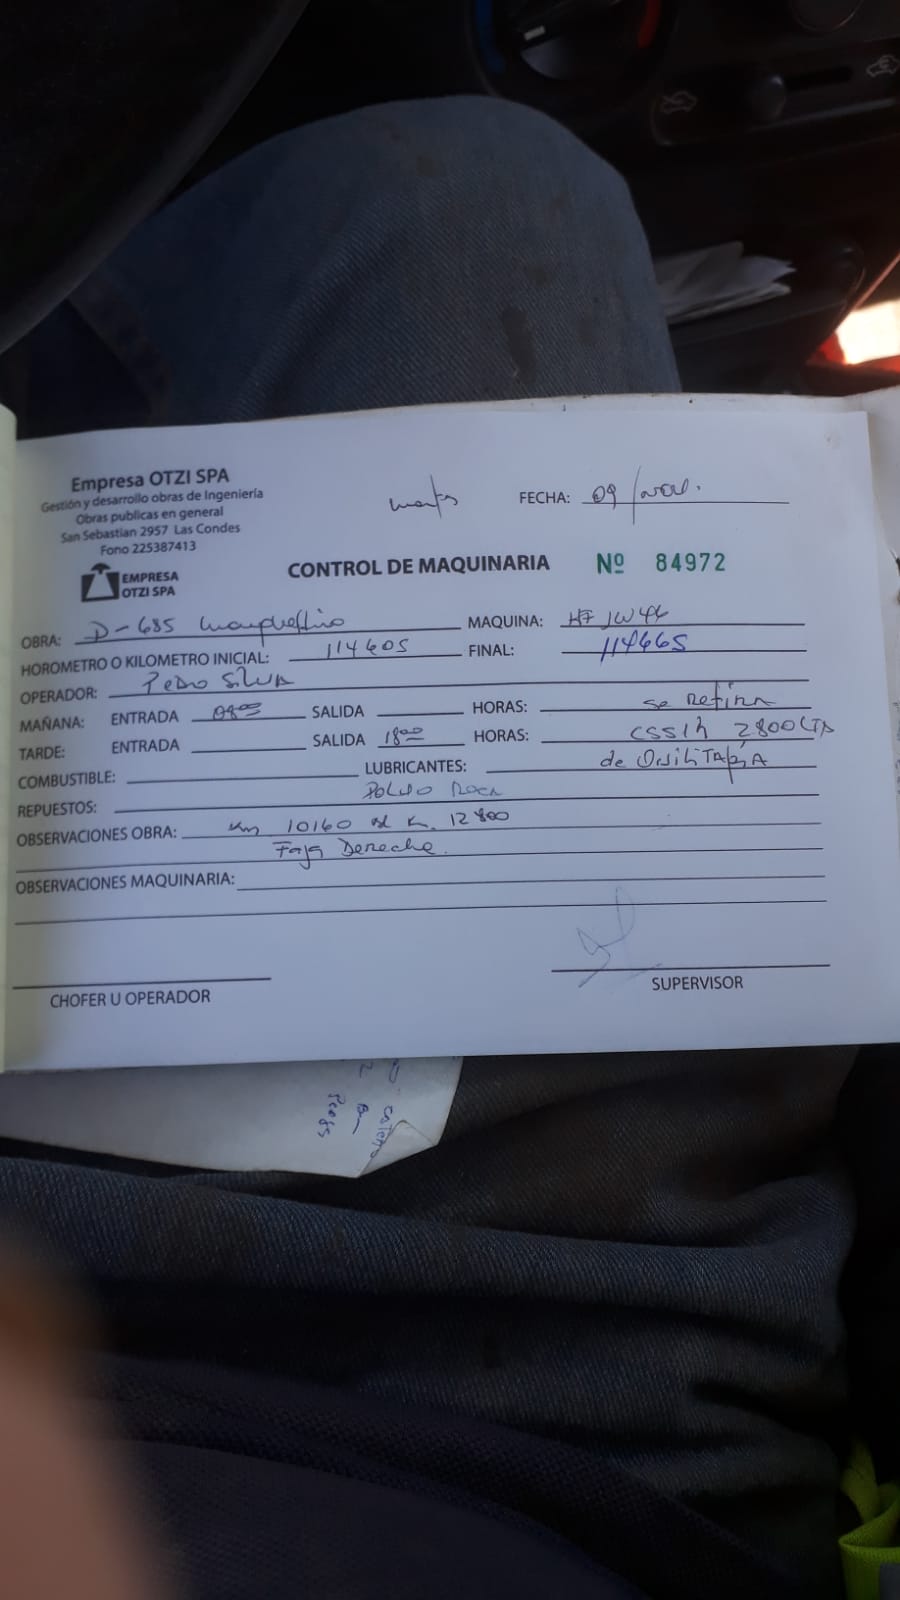 Empresa OTZI SPA
Gestión y desarrollo obras de Ingeniería
Obras publicas en general
San Sebastian 2957 Las Condes
Fono 225387413
EMPRESA
OTZI SPA
martes
FECHA: 09/nov.
CONTROL DE MAQUINARIA Nº 84972
OBRA: D-685
MAQUINA: HF JW46
HOROMETRO O KILOMETRO INICIAL: 114605 FINAL: 114665
OPERADOR: Pedro Silva
MAÑANA: ENTRADA 0800 SALIDA HORAS: se Retira
TARDE: ENTRADA SALIDA 1800 HORAS: CSS1h 2800 LTS
COMBUSTIBLE: LUBRICANTES: de
REPUESTOS: Polvo Roca
OBSERVACIONES OBRA: Km 10160 al K. 12800
Faja Derecha.
OBSERVACIONES MAQUINARIA:
CHOFER U OPERADOR
SUPERVISOR